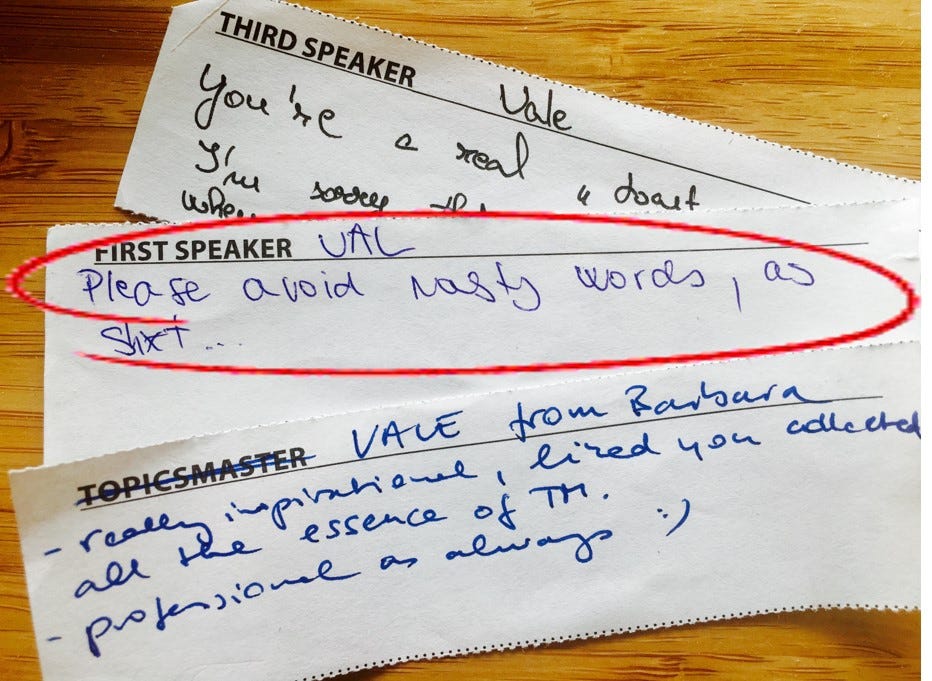 THIRD SPEAKER Vale
You're a real
I'm sorry
when
FIRST SPEAKER VAL
Please avoid nasty words, as
shxt...
TOPICSMASTER VALE from Barbara
- really inspirational, liked you collected
all the essence of TM.
- professional as always :)